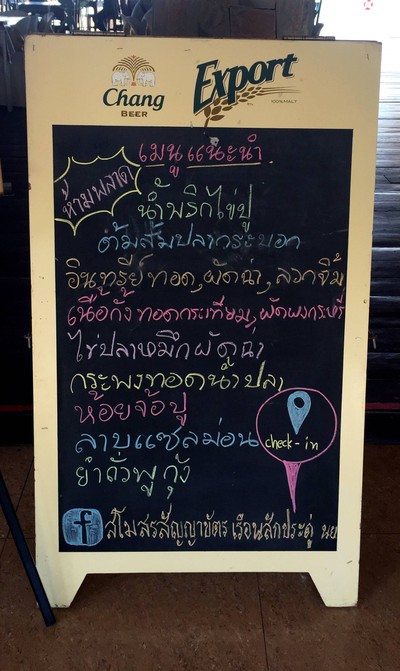 Chang
BEER
Export
100% MALT
เมนูแนะนำ
ห้ามพลาด
น้ำพริกไข่ปู
ต้มส้มปลากระบอก
อินทรีย์ทอด, ผัดฉ่า, ลวกจิ้ม
เนื้อกั้งทอดกระเทียม, ผัดผงกะหรี่
ไข่ปลาหมึกผัดฉ่า
กระพงทอดน้ำปลา
ห้อยจ้อปู
ลาบแซลม่อน
check-in
ยำถั่วพูกุ้ง
f สโมสรสัญญาบัตร เรือนสักประดู่ นย